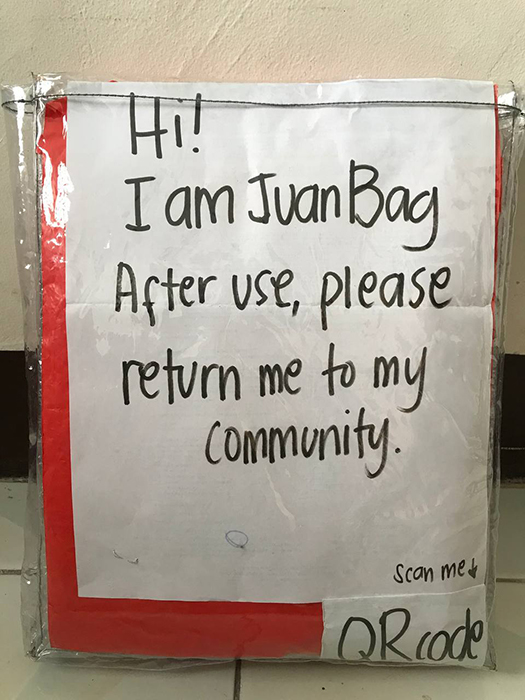 Hi!
I am JuanBag
After use, please
return me to my
community.
scan me↓
QR code